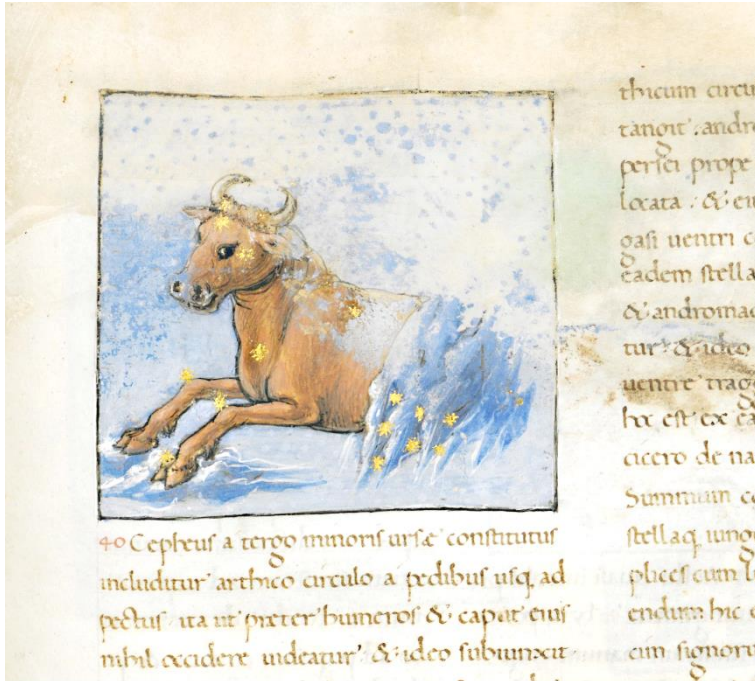 40 Cepheus a tergo minoris ursæ constitutus
includitur arthico circulo a pedibus usq ad
pectus ita ut præter humeros & caput eius
nihil occidere uideatur & ideo subiunxit
thicum circu
tangit andro
persei prope
locata & eiu
gasi uentri c
eadem stella
& andromad
tur & ideo
uentre
hoc est ex ea
cicero de na
Summum ca
stellaq iung
plices cum l
endum hic
cim signoru